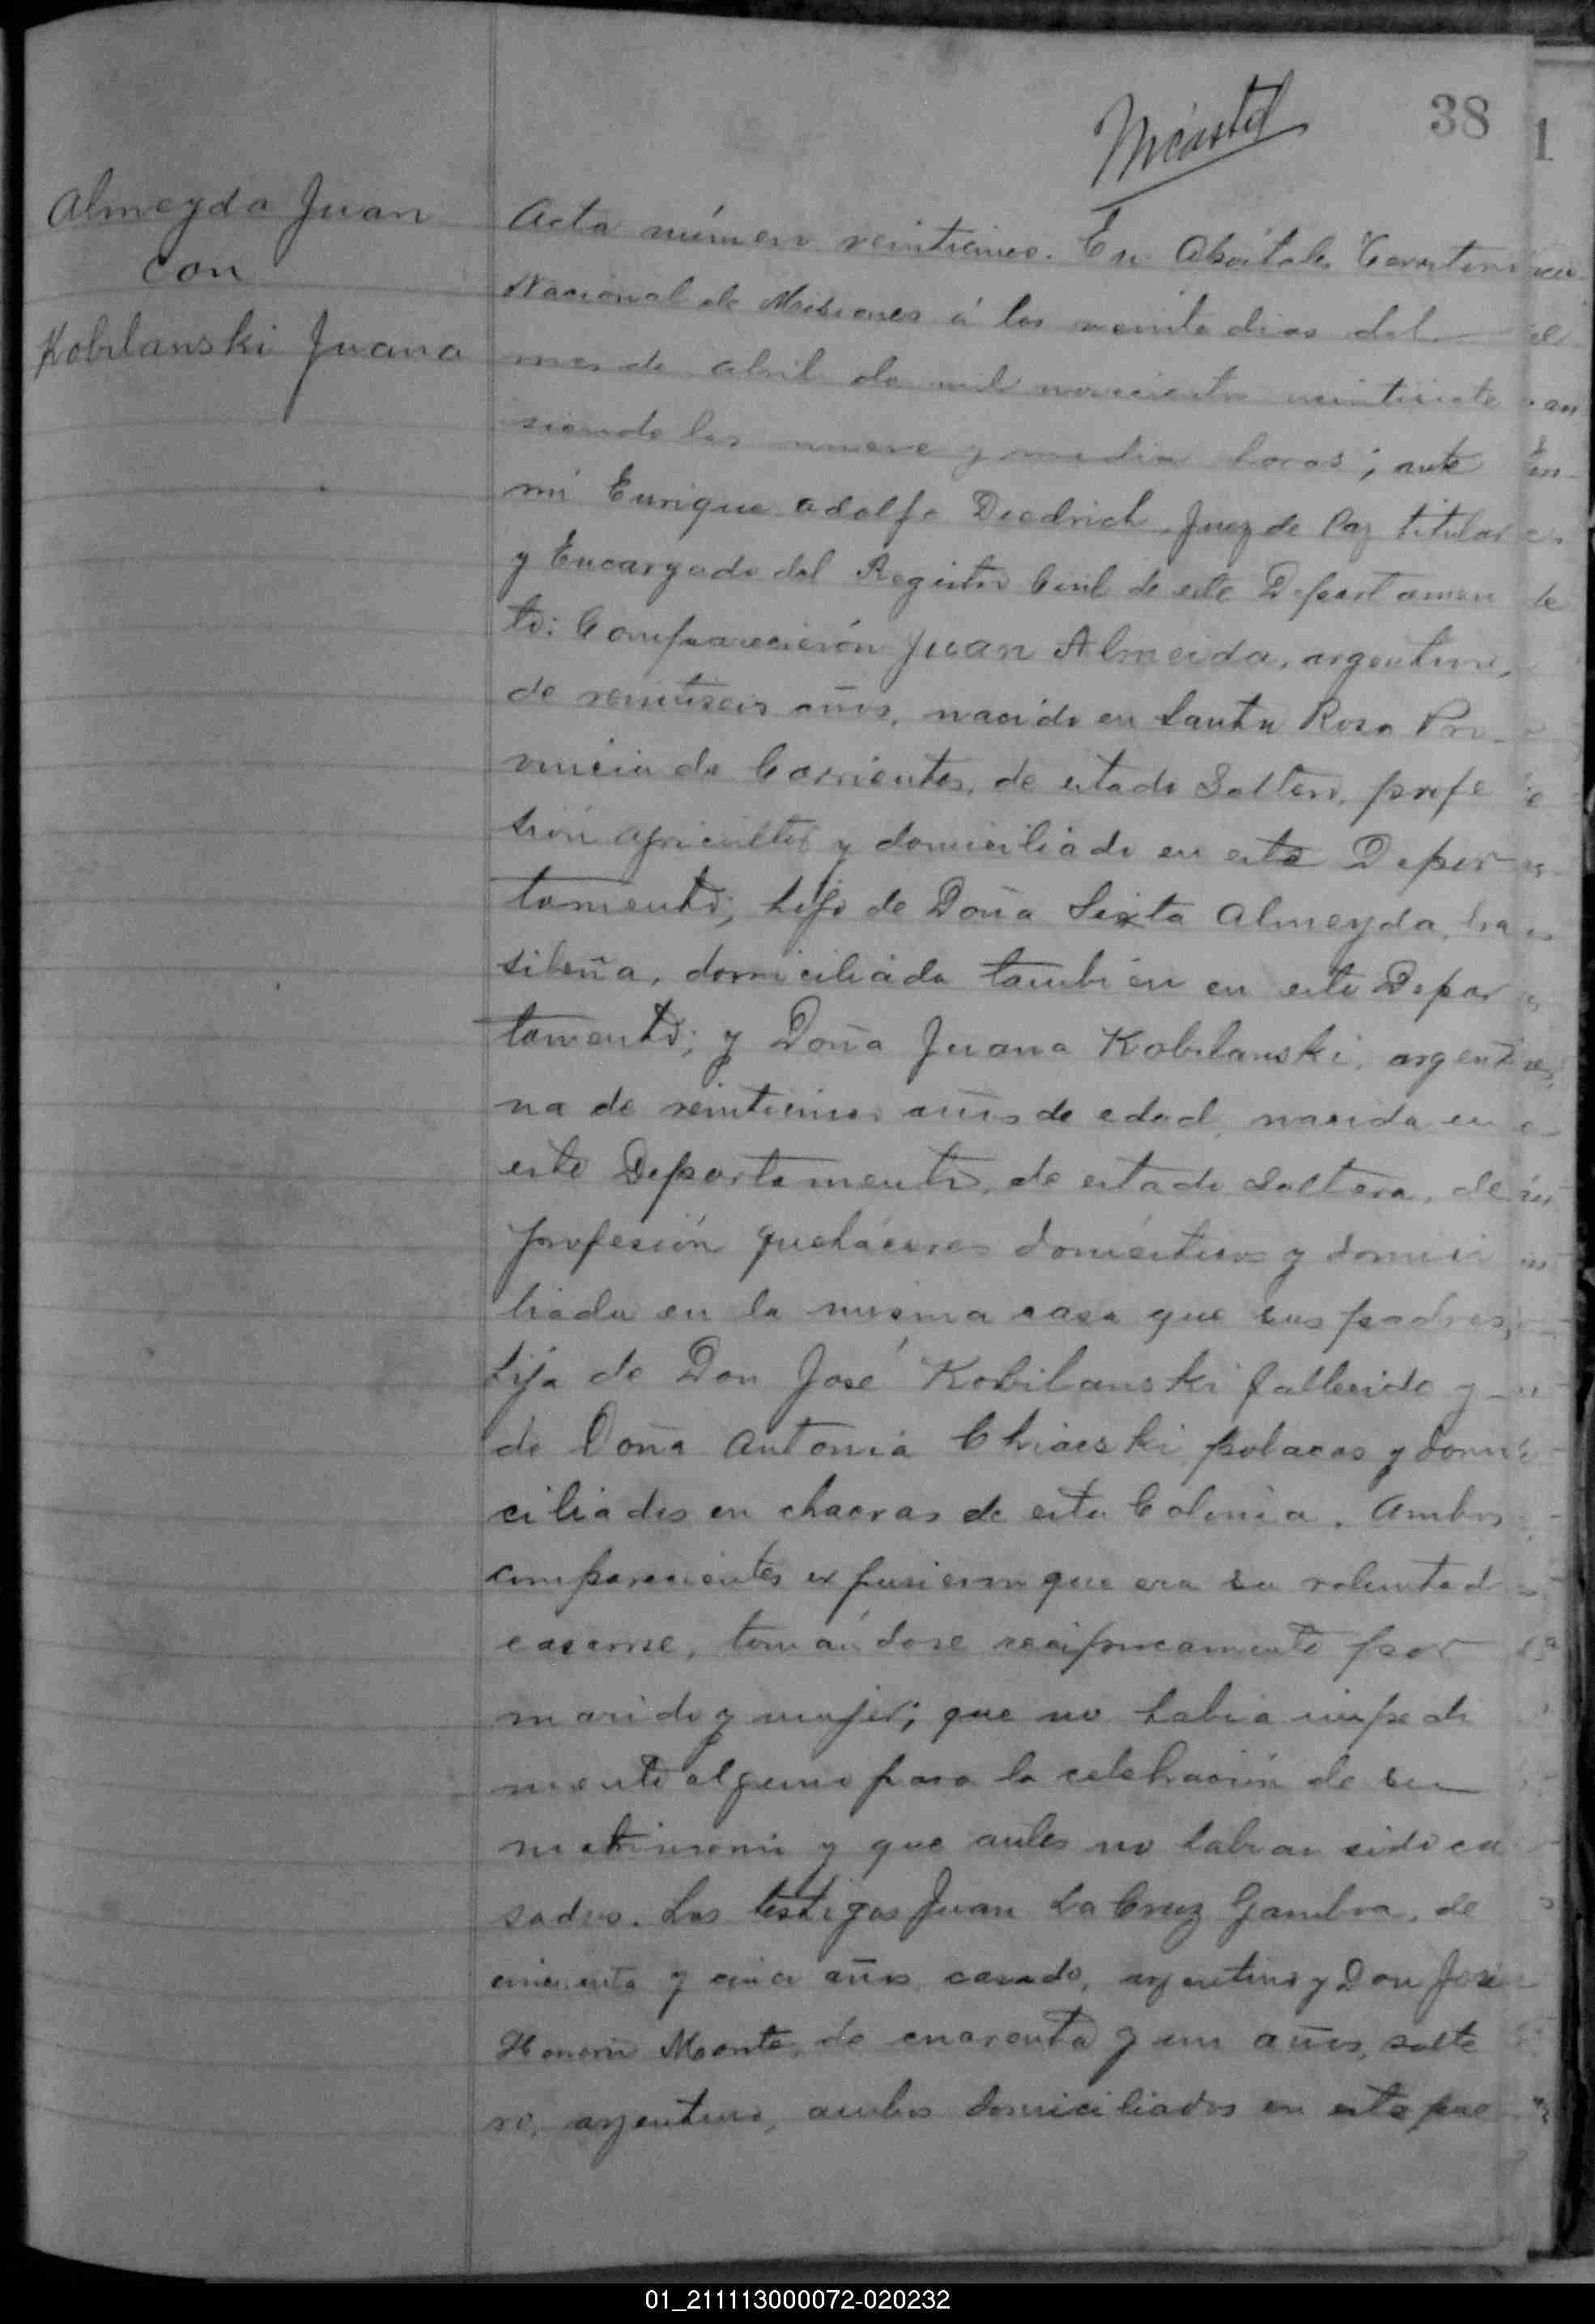 38
Almeyda Juan
con
Kobilanski Juana
Acta número veinticinco. En Apóstoles Territorio
Nacional de Misiones á los veinte dias del
mes de abril de mil novecientos veintisiete
siendo las nueve y media horas; ante
mi Enrique Adolfo Diedrich Juez de Paz titular
y Encargado del Registro Civil de este Departamen
to: Comparecierón Juan Almeida, argentino,
de veintiseis años, nacido en Santa Rosa Pro-
vincia de Corrientes, de estado Soltero, profe
sión agricultor y domiciliado en este Depar
tamento; hijo de Doña Sixta Almeyda, bra
sileña, domiciliada también en este Depar
tamento; y Doña Juana Kobilanski, argenti
na de veinticinco años de edad, nacida en
este Departamento, de estado Soltera, de
profesión quehaceres domésticos y domici
liada en la misma casa que sus padres,
hija de Don José Kobilanski fallecido y
de Doña Antonia Chiaeski polacos y domi
ciliados en chacras de esta Colonia. Ambos
comparecientes expusieron que era su voluntad
casarse, tomándose reciprocamente por
marido y mujer; que no habia impedi
mento alguno para la celebración de su
matrimonio y que antes no habian sido ca
sados. Los testigos Juan La Cruz Gamboa, de
cincuenta y cinco años, casado, argentino y Don José
Honorio Monte, de cuarenta y un años, solte
ro, argentino, ambos domiciliados en este pue
01_211113000072-020232